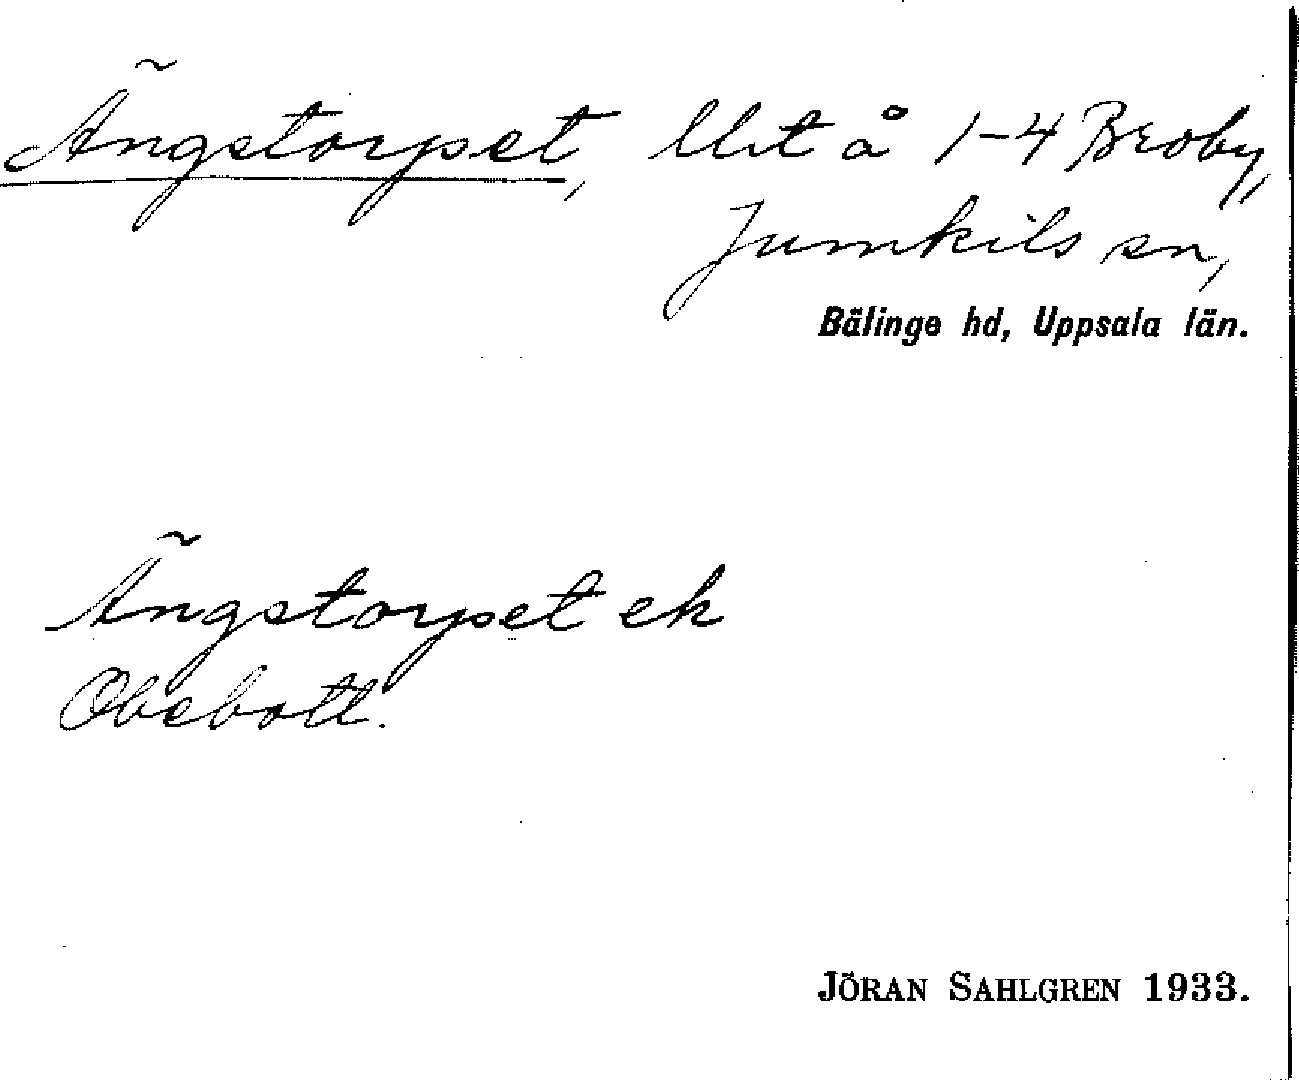 Ängstorpet, Utt å 1-4 Broby,
Jumkils sn,
Bälinge hd, Uppsala län.
Ängstorpet ek
Obebott.
JÖRAN SAHLGREN 1933.